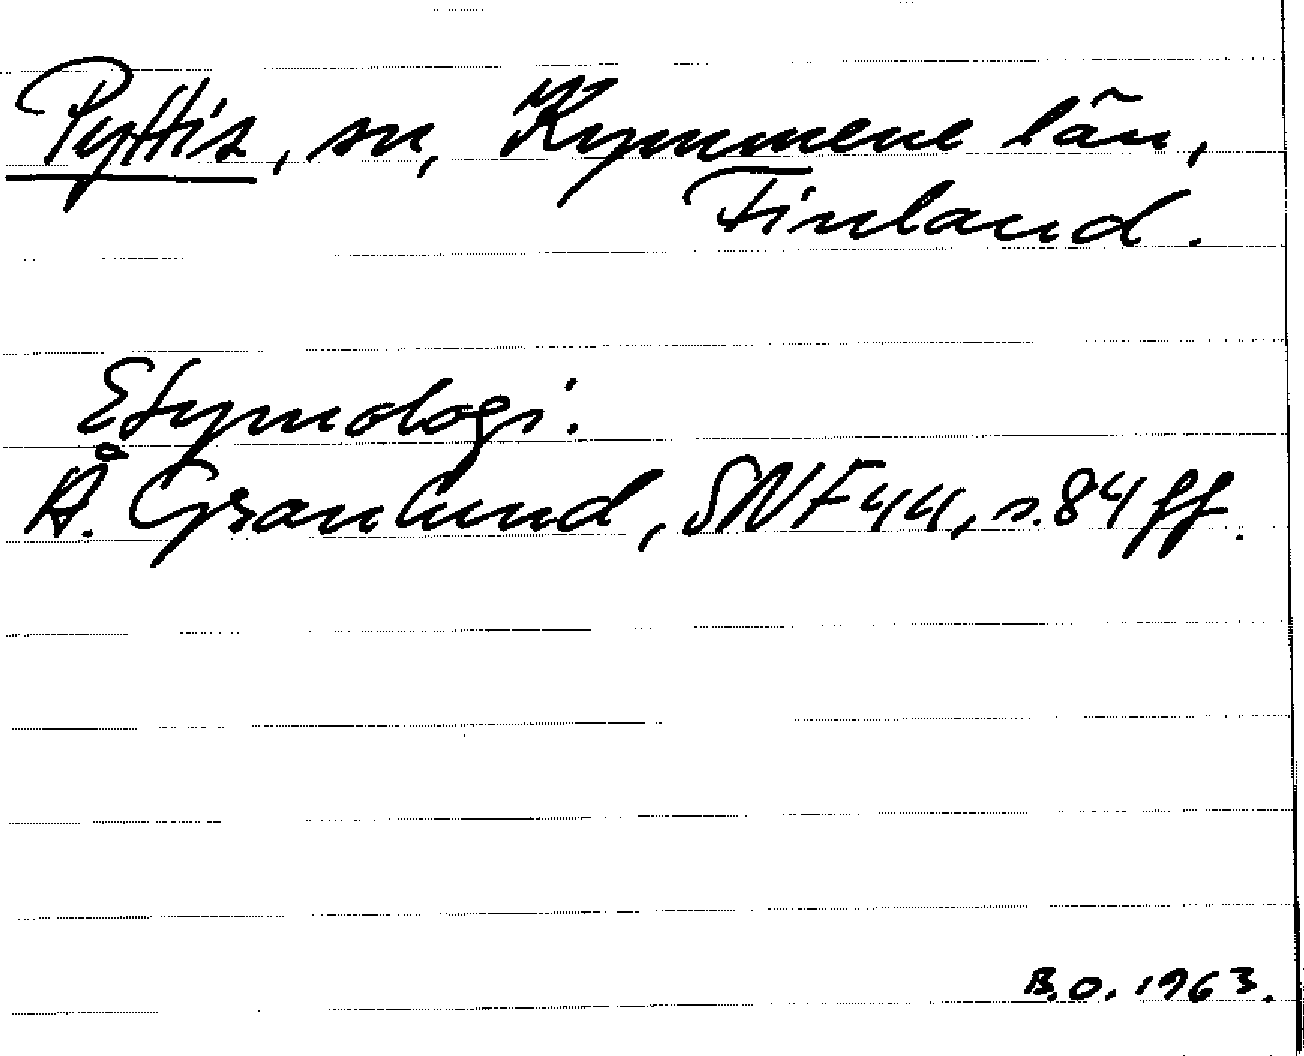 Pyttis, sn, Kymmene län,
Finland.
Etymologi.
Å. Granlund, SNF 44, s. 84 ff.
B.O. 1963.